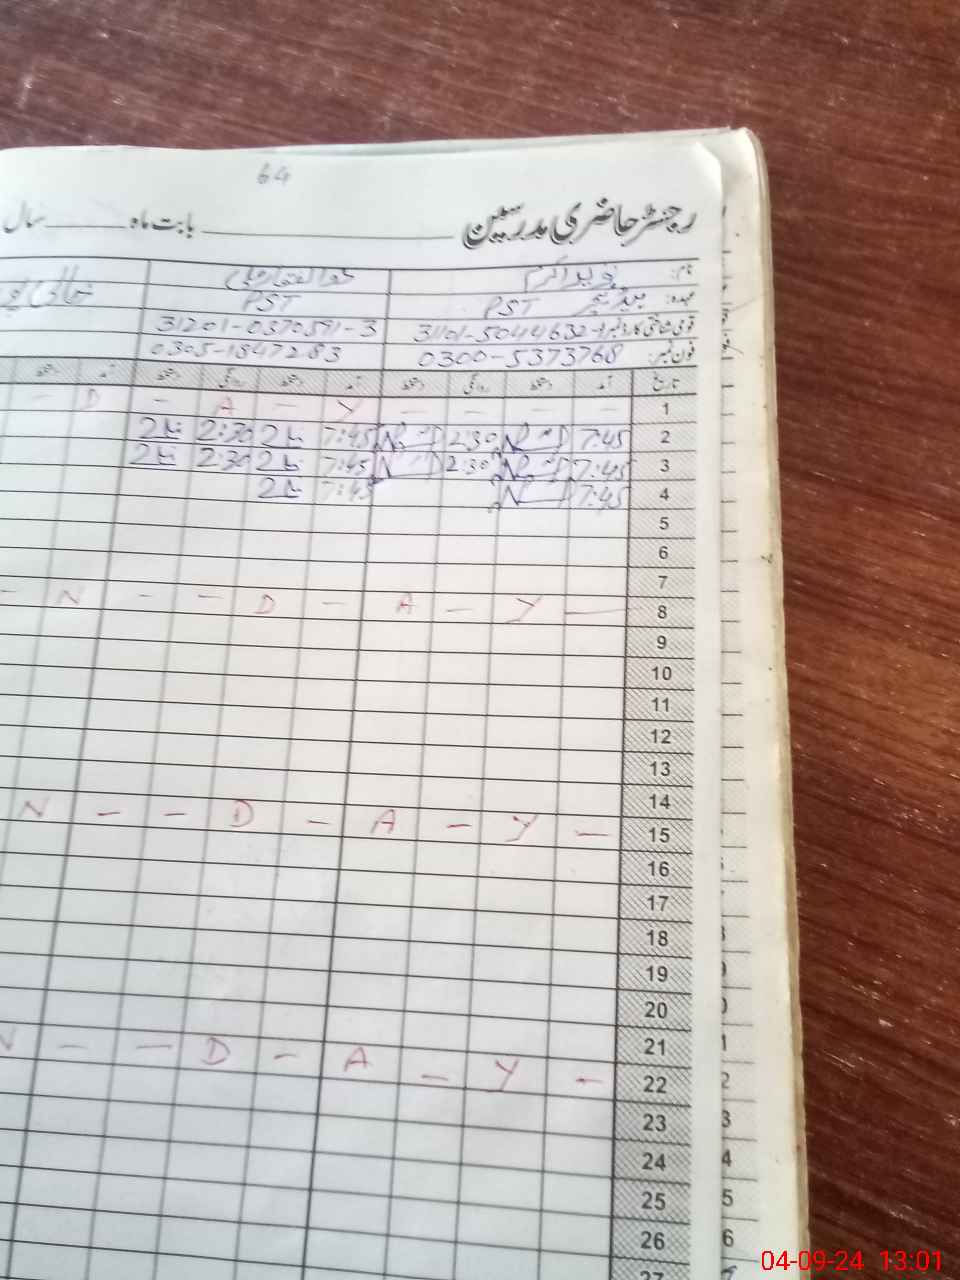 64
رجسٹر حاضری مدرسین ________ بابت ماہ ________ سال
نام: نوید اکرم
عہدہ: ہیڈ ٹیچر PST PST
قومی شناختی کارڈ نمبر: 31101-5044632-1 31201-0370591-3
فون نمبر: 0300-5373768 0305-1847283
تاریخ آمد دستخط روانگی دستخط آمد دستخط روانگی دستخط آمد دستخط
1 — — — — Y — A — D —
2 7:45 2:30 7:45 2:30
3 7:45 2:30 7:45 2:30
4 7:45 7:45
5
6
7
8 — Y — A — D — — N —
9
10
11
12
13
14
15 — Y — A — D — — N
16
17
18
19
20
21
22 — Y — A — D — — N
23
24
25
26
27
04-09-24 13:01